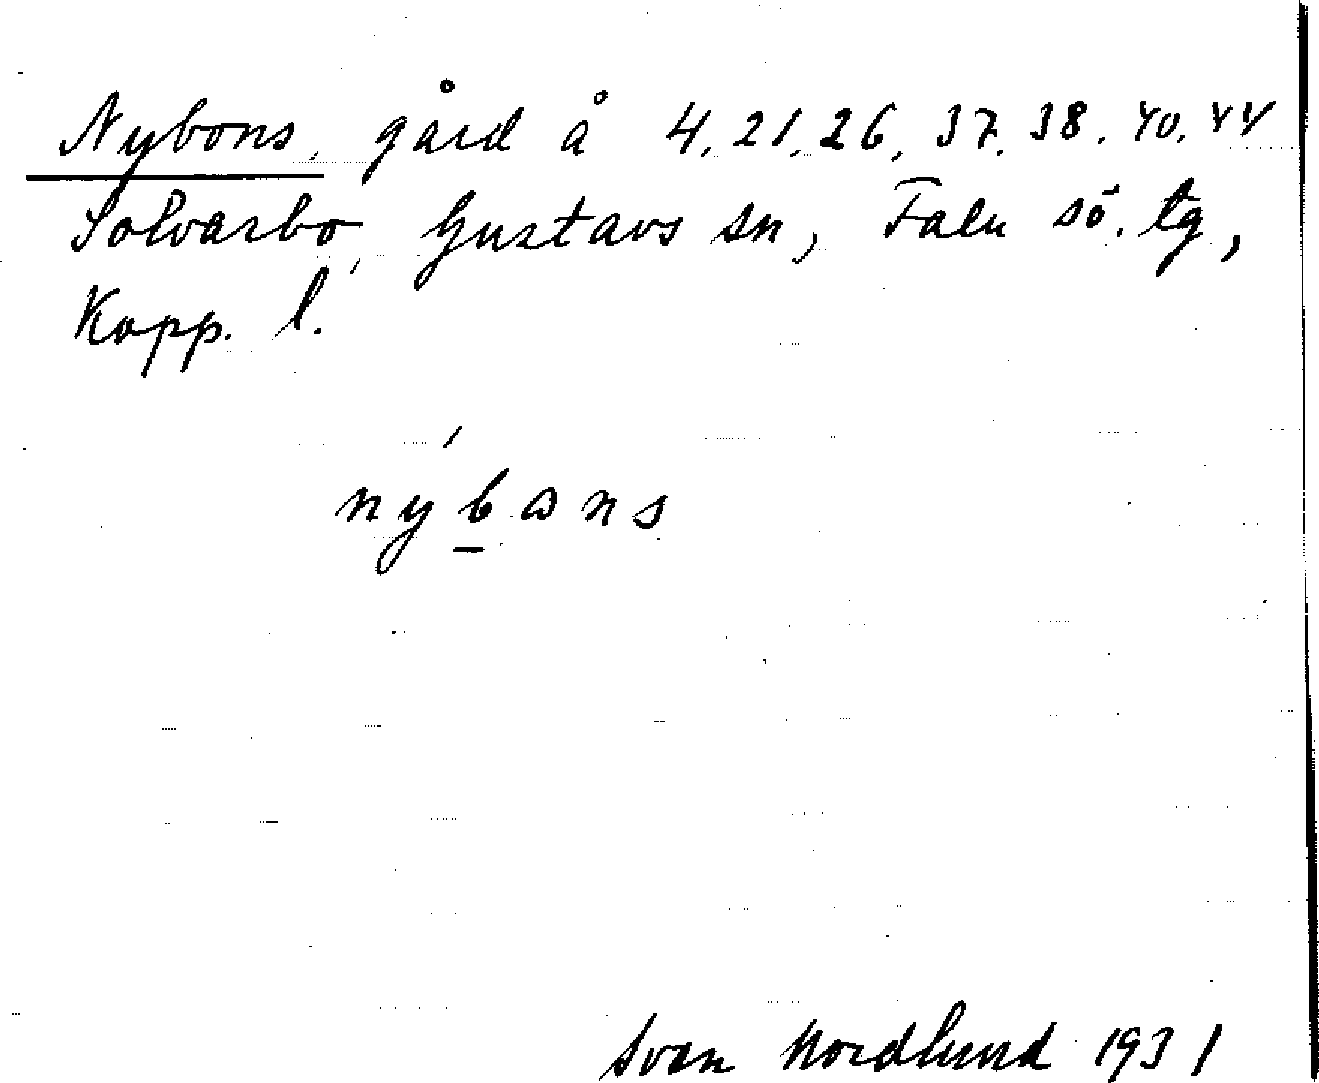 Nybons, gård å 4, 21, 26, 37, 38, 40, 44
Solvarbo, Gustavs sn, Falu sö. tg,
Kopp. l.
nybɷns
Sven Nordlund 1931